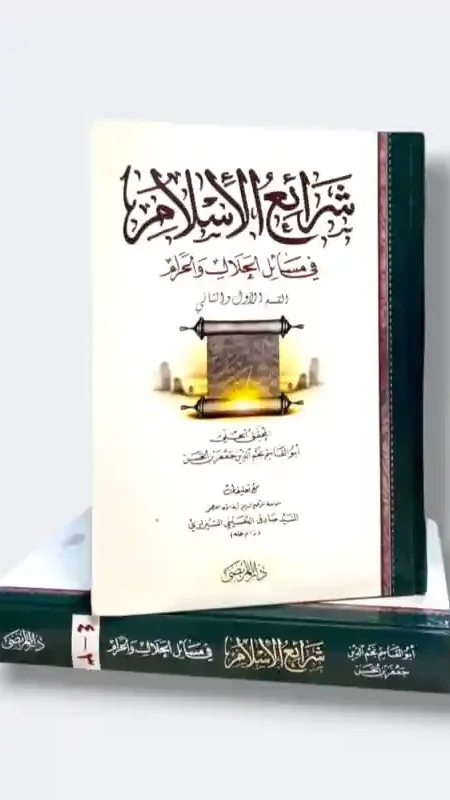 شرائع الإسلام
في مسائل الحلال والحرام
القسم الأول والثاني
المحقق الحلي
أبو القاسم نجم الدين جعفر بن الحسن
مع تعليقات
السيد صادق الحسيني الشيرازي
(دام ظله)
دار المرتضى
أبو القاسم نجم الدين
جعفر بن الحسن
شرائع الإسلام
في مسائل الحلال والحرام
٣-٤
دار المرتضى